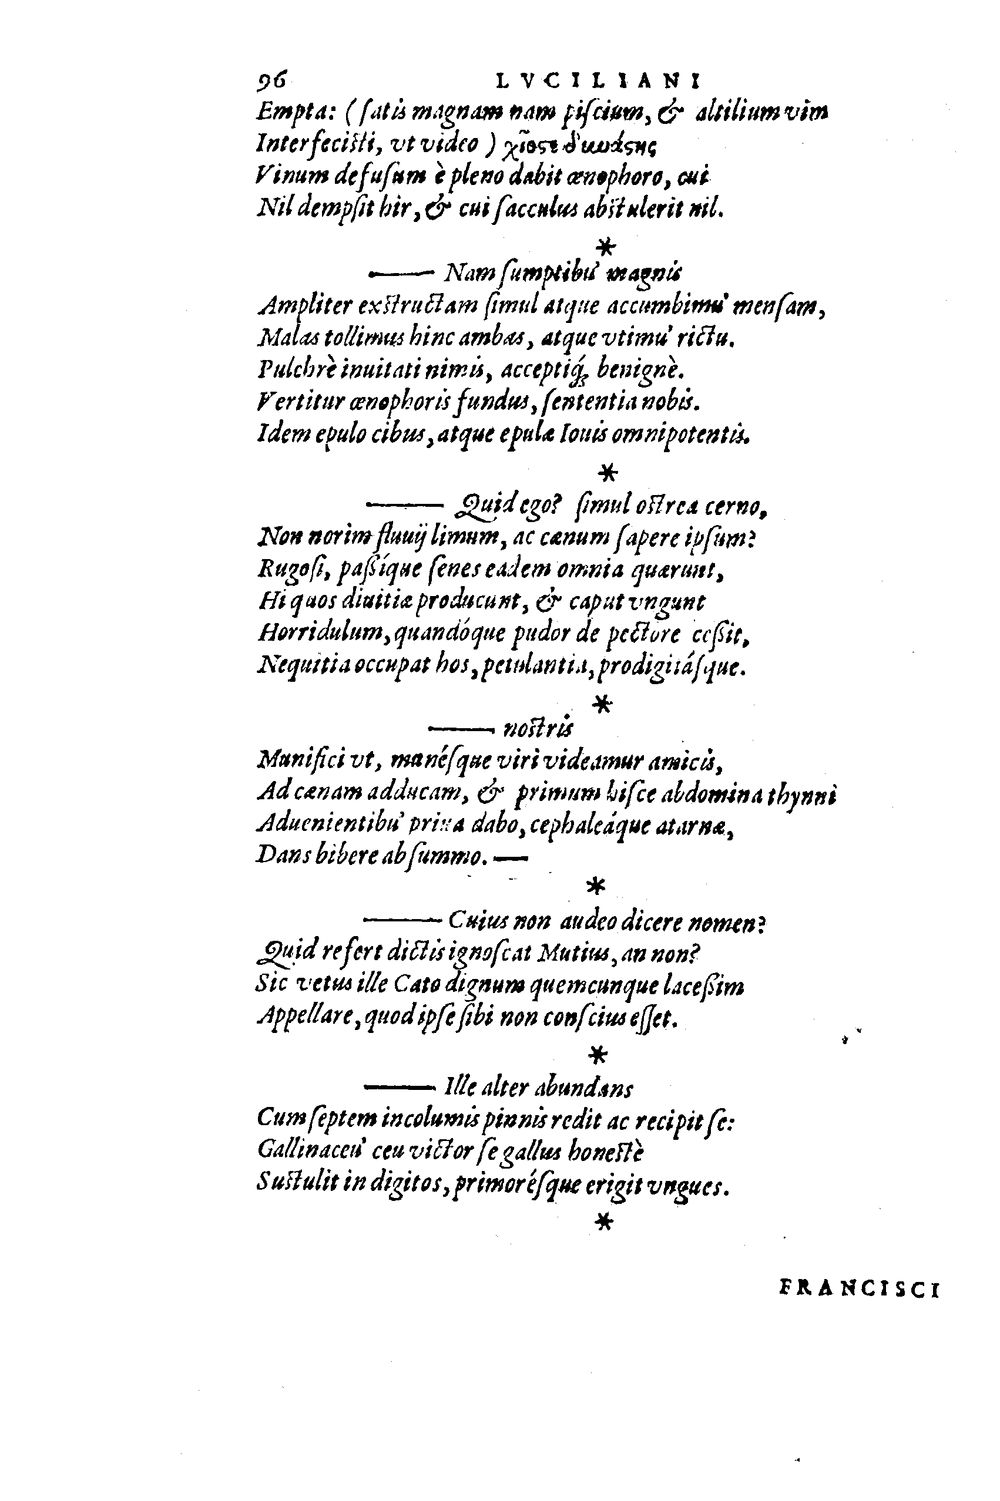 96 LVCILIANI
Empta: (ſatis magnam nam piſcium, & altilium vim
Interfeciſti, vt video) χῖός τε δυνάςης
Vinum defuſum è pleno dabit œnophoro, cui
Nil dempſit hir, & cui ſacculus abſtulerit nil.
*
—— Nam ſumptibu' magnis
Ampliter exſtructam ſimul atque accumbimu' menſam,
Malas tollimus hinc ambas, atque vtimu' rictu.
Pulchrè inuitati nimis, acceptiq́; benignè.
Vertitur œnophoris fundus, ſententia nobis.
Idem epulo cibus, atque epulæ Iouis omnipotentis.
*
—— Quid ego? ſimul oſtrea cerno,
Non norim fluuij limum, ac cænum ſapere ipſum?
Rugoſi, paſſíque ſenes eadem omnia quærunt,
Hi quos diuitiæ producunt, & caput vngunt
Horridulum, quandóque pudor de pectore ceſſit,
Nequitia occupat hos, petulantia, prodigitáſque.
*
—— noſtris
Munifici vt, manéſque viri videamur amicis,
Ad cænam adducam, & primum hiſce abdomina thynni
Aduenientibu' priua dabo, cephaleáque atarnæ,
Dans bibere ab ſummo. —
*
—— Cuius non audeo dicere nomen?
Quid refert dictis ignoſcat Mutius, an non?
Sic vetus ille Cato dignum quemcunque laceſſim
Appellare, quod ipſe ſibi non conſcius eſſet.
*
—— Ille alter abundans
Cum ſeptem incolumis pinnis redit ac recipit ſe:
Gallinaceu' ceu victor ſe gallus honeſtè
Suſtulit in digitos, primoréſque erigit vngues.
*
FRANCISCI